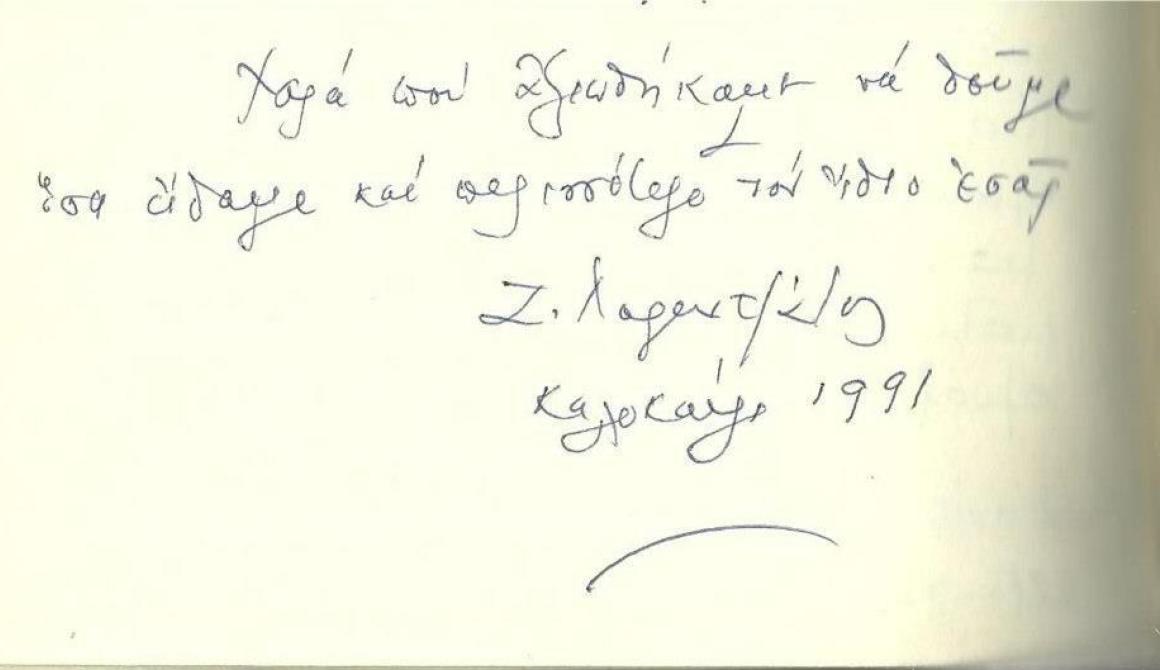 Χαρά πού ἀξιωθήκαμε νά δοῦμε
ὅσα εἴδαμε καί περισσότερο τόν ἴδιο ἐσᾶς
Ζ.
Καλοκαίρι 1991